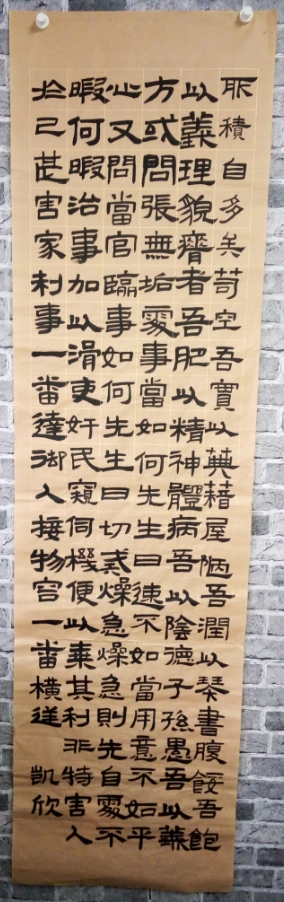 所積自多矣苟空吾實以典籍屋陋吾潤以琴書腹餒吾飽
以義理貌瘠者吾肥以精神體病吾以陰德子孫愚吾以義
方或問張無垢處事當如何先生曰速不如當用意不如平
心又問當官臨事如何先生曰切戒燥急燥急則先自處不
暇何暇治事加以滑吏奸民窺伺機便以乘其利非特害人
於己甚害家利事一番達御人接物宫一番橫逆 凱欣